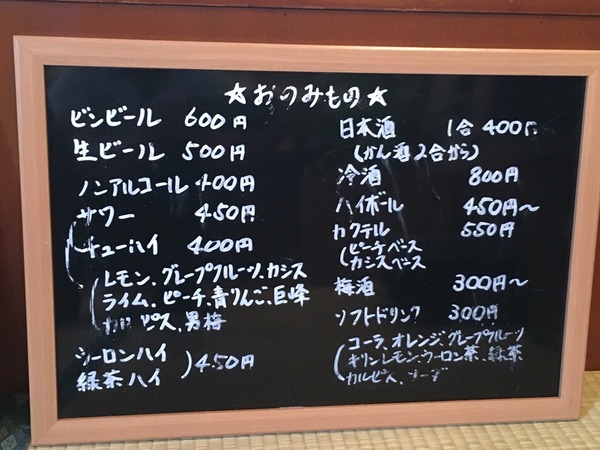 ★おのみもの★
ビンビール 600円
生ビール 500円
ノンアルコール 400円
サワー 450円
チューハイ 400円
(レモン、グレープフルーツ、カシス
ライム、ピーチ、青りんご、巨峰
カルピス、男梅
ウーロンハイ
緑茶ハイ )450円
日本酒 1合 400円
(かん酒2合から)
冷酒 800円
ハイボール 450円〜
カクテル 550円
(ピーチベース
カシスベース
梅酒 300円〜
ソフトドリンク 300円
(コーラ、オレンジ、グレープフルーツ
キリンレモン、ウーロン茶、緑茶
カルピス、ソーダ